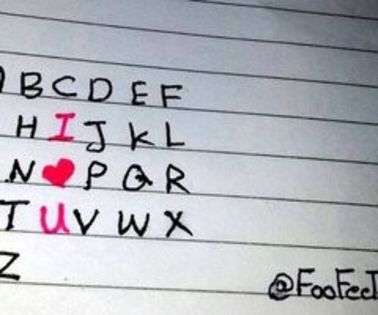 B C D E F
H I J K L
N ❤ P Q R
T U V W X
Z
@FooFeeT